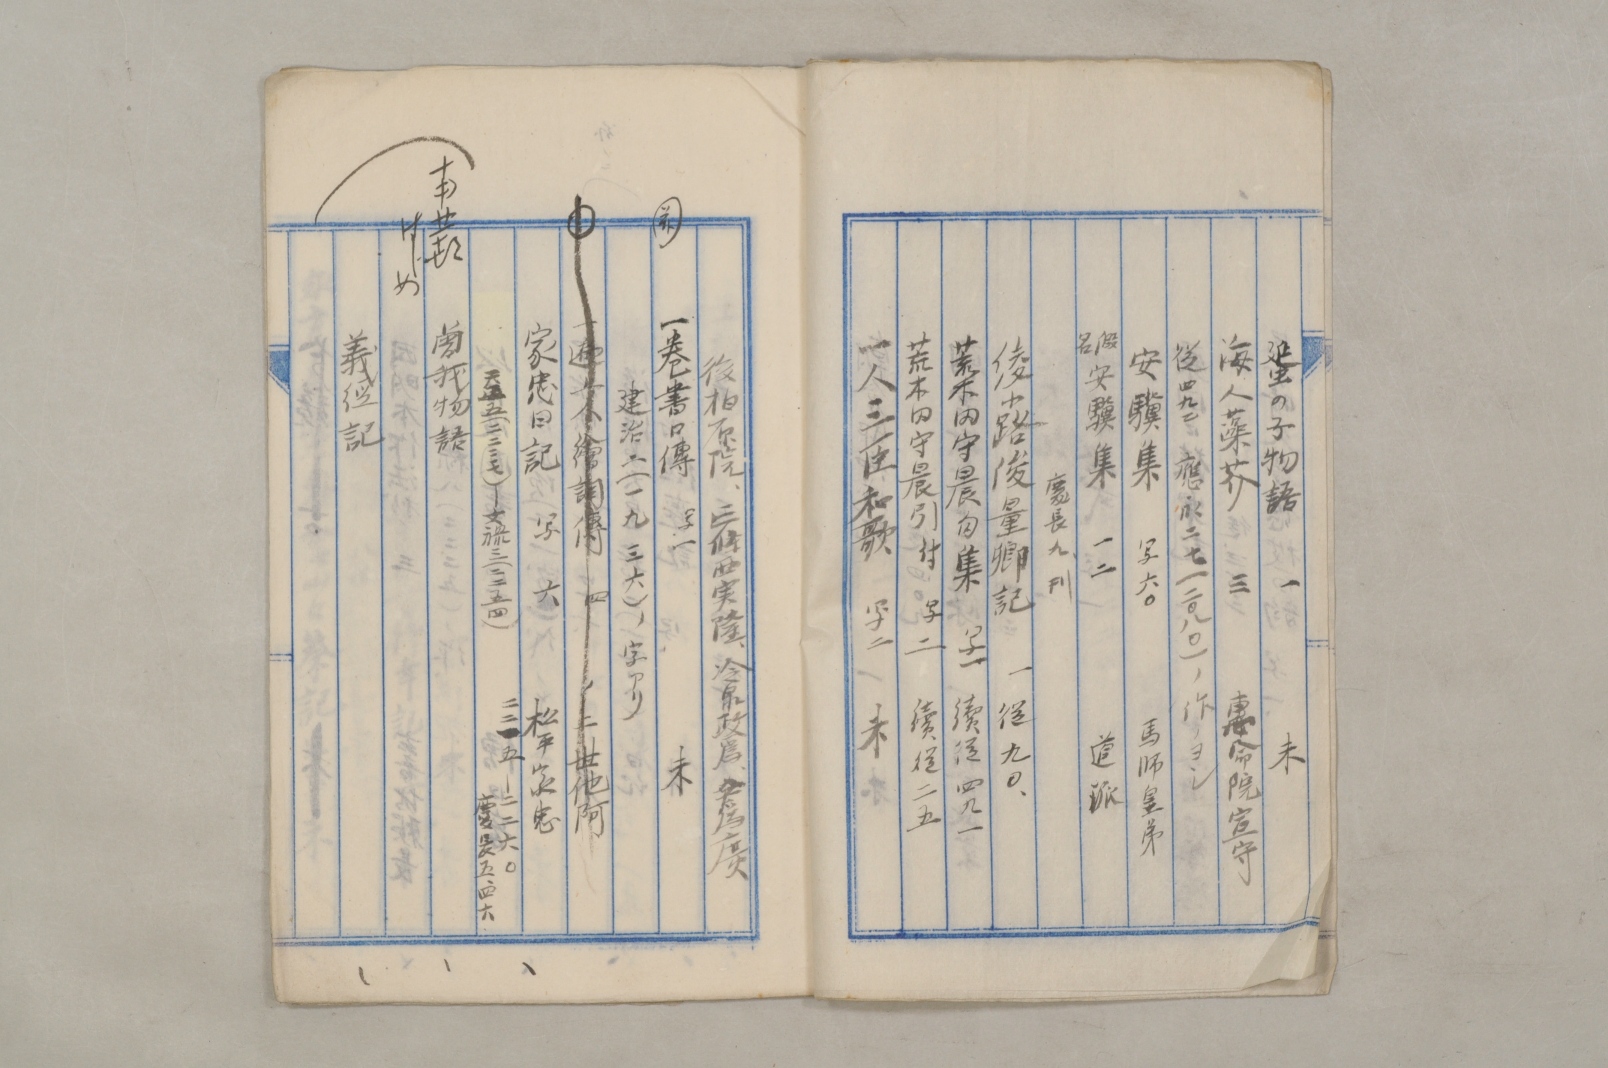 蜑の子物語 一 未
海人藻芥 三 恵命院宣守
從四九二 應永二七(二〇八〇)ノ作ノヨシ
安驥集 写六〇 馬師皇弟
假名安驥集 一二 道派
慶長九刊
綾小路俊量卿記 一 從九〇、
荒木田守晨句集 写一 續從四九一
荒木田守晨引付 写二 續從二五
一人三臣和歌 写二 未
後柏原院、三條西実隆、冷泉政爲、爲廣
一巻書口傳 写一 未
建治二(一九三六)ノ字アリ
一遍上人繪詞傳 四 二世他阿
家忠日記 写 六 松平家忠
天正五(二二三七)―文祿三(二二五四)
二二一五―二二六〇
慶長五、四六
曽我物語
義経記
はじめ